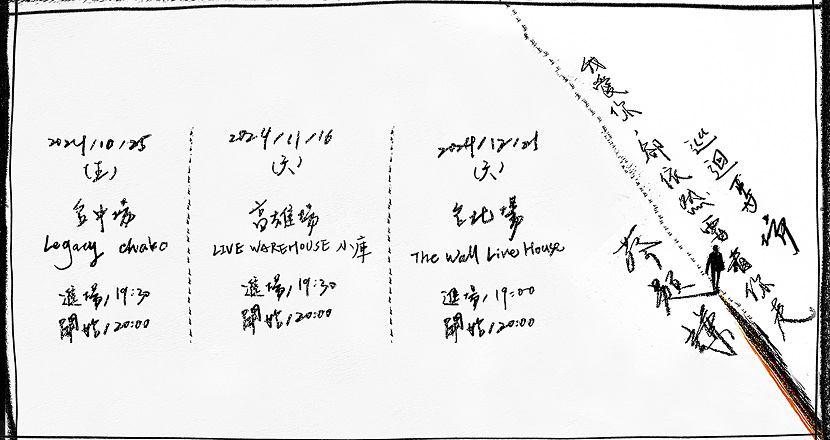 2024/10/25
(五)
台中場
Legacy
進場/19:30
開始/20:00
2024/11/16
(六)
高雄場
LIVE WAREHOUSE 小庫
進場/19:30
開始/20:00
2024/12/21
(六)
台北場
The Wall Live House
進場/19:00
開始/20:00
我愛你,卻依然著你走
巡迴專場